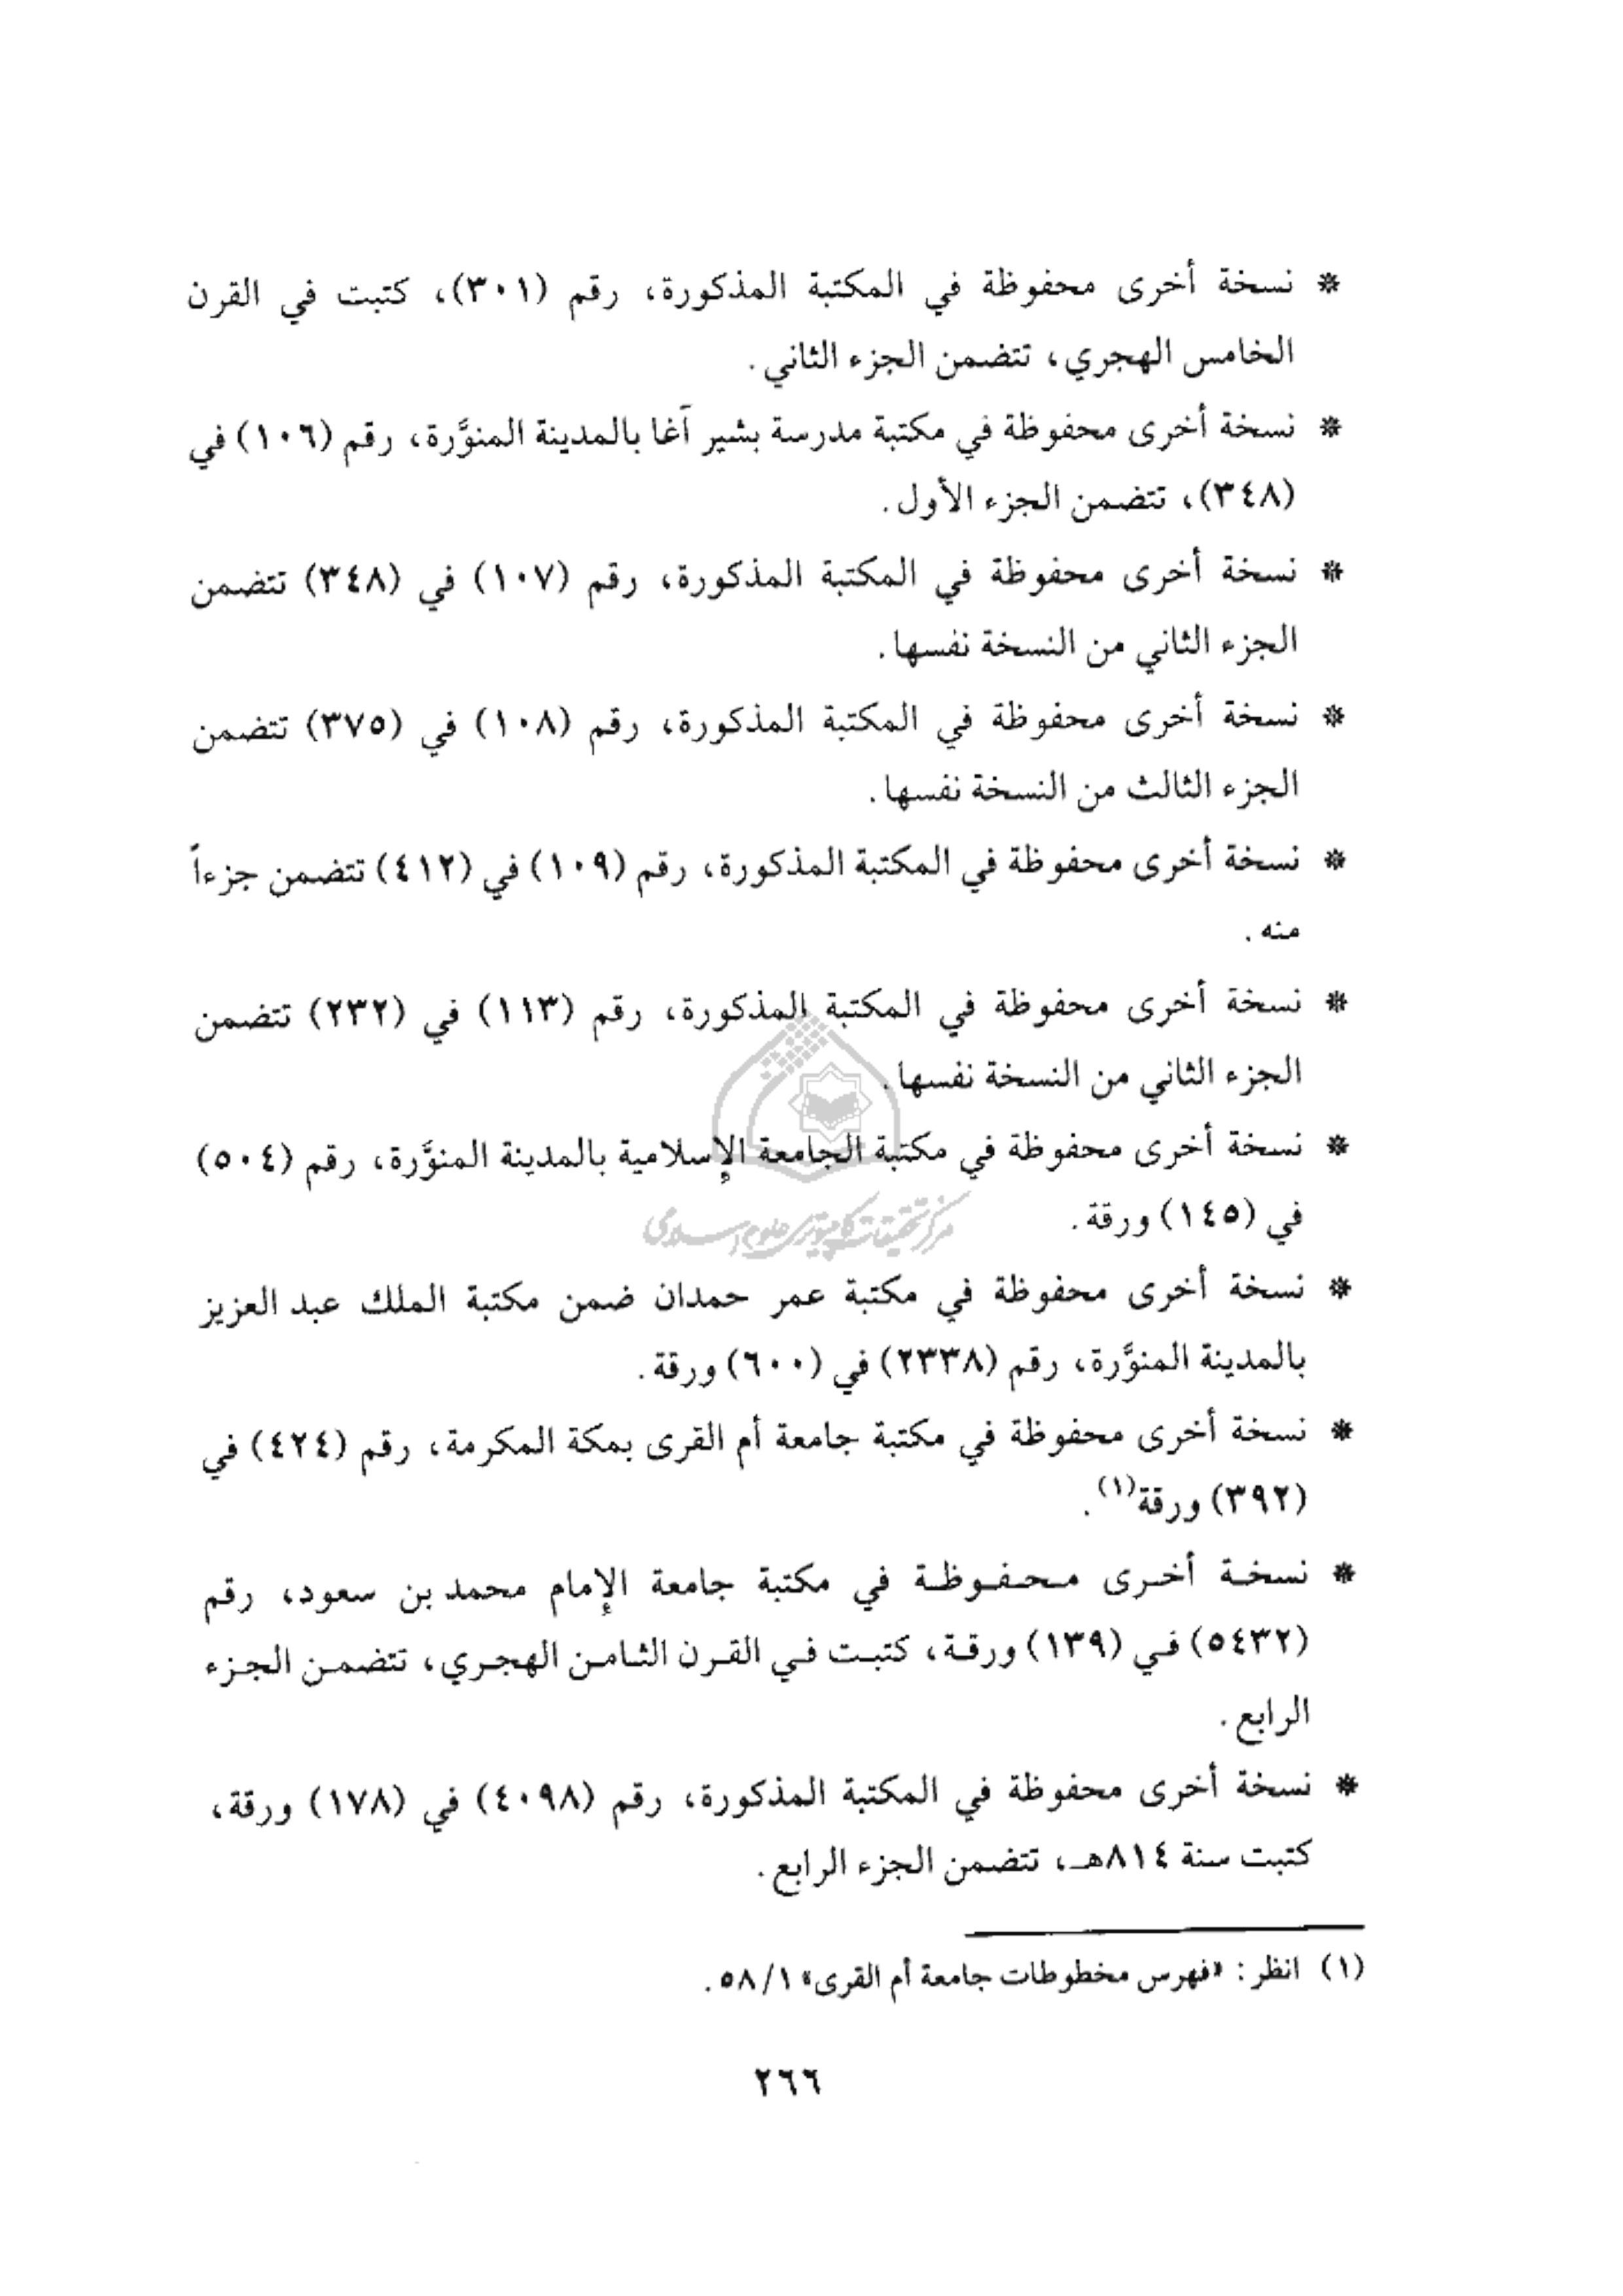 * نسخة أخرى محفوظة في المكتبة المذكورة، رقم (٣٠١)، كتبت في القرن
الخامس الهجري، تتضمن الجزء الثاني.
* نسخة أخرى محفوظة في مكتبة مدرسة بشير آغا بالمدينة المنوَّرة، رقم (١٠٦) في
(٣٤٨)، تتضمن الجزء الأول.
* نسخة أخرى محفوظة في المكتبة المذكورة، رقم (١٠٧) في (٣٤٨) تتضمن
الجزء الثاني من النسخة نفسها.
* نسخة أخرى محفوظة في المكتبة المذكورة، رقم (١٠٨) في (٣٧٥) تتضمن
الجزء الثالث من النسخة نفسها.
* نسخة أخرى محفوظة في المكتبة المذكورة، رقم (١٠٩) في (٤١٢) تتضمن جزءاً
منه.
* نسخة أخرى محفوظة في المكتبة المذكورة، رقم (١١٣) في (٢٣٢) تتضمن
الجزء الثاني من النسخة نفسها.
* نسخة أخرى محفوظة في مكتبة الجامعة الإسلامية بالمدينة المنوَّرة، رقم (٥٠٤)
في (١٤٥) ورقة.
مركز تحقیقات کامپیوتری علوم اسلامی
* نسخة أخرى محفوظة في مكتبة عمر حمدان ضمن مكتبة الملك عبد العزيز
بالمدينة المنوَّرة، رقم (٢٣٣٨) في (٦٠٠) ورقة.
* نسخة أخرى محفوظة في مكتبة جامعة أم القرى بمكة المكرمة، رقم (٤٢٤) في
(٣٩٢) ورقة(١).
* نسخة أخرى محفوظة في مكتبة جامعة الإمام محمد بن سعود، رقم
(٥٤٣٢) في (١٣٩) ورقة، كتبت في القرن الثامن الهجري، تتضمن الجزء
الرابع.
* نسخة أخرى محفوظة في المكتبة المذكورة، رقم (٤٠٩٨) في (١٧٨) ورقة،
كتبت سنة ٨١٤هـ، تتضمن الجزء الرابع.
(١) انظر: «فهرس مخطوطات جامعة أم القرى» ٥٨/١.
٢٦٦